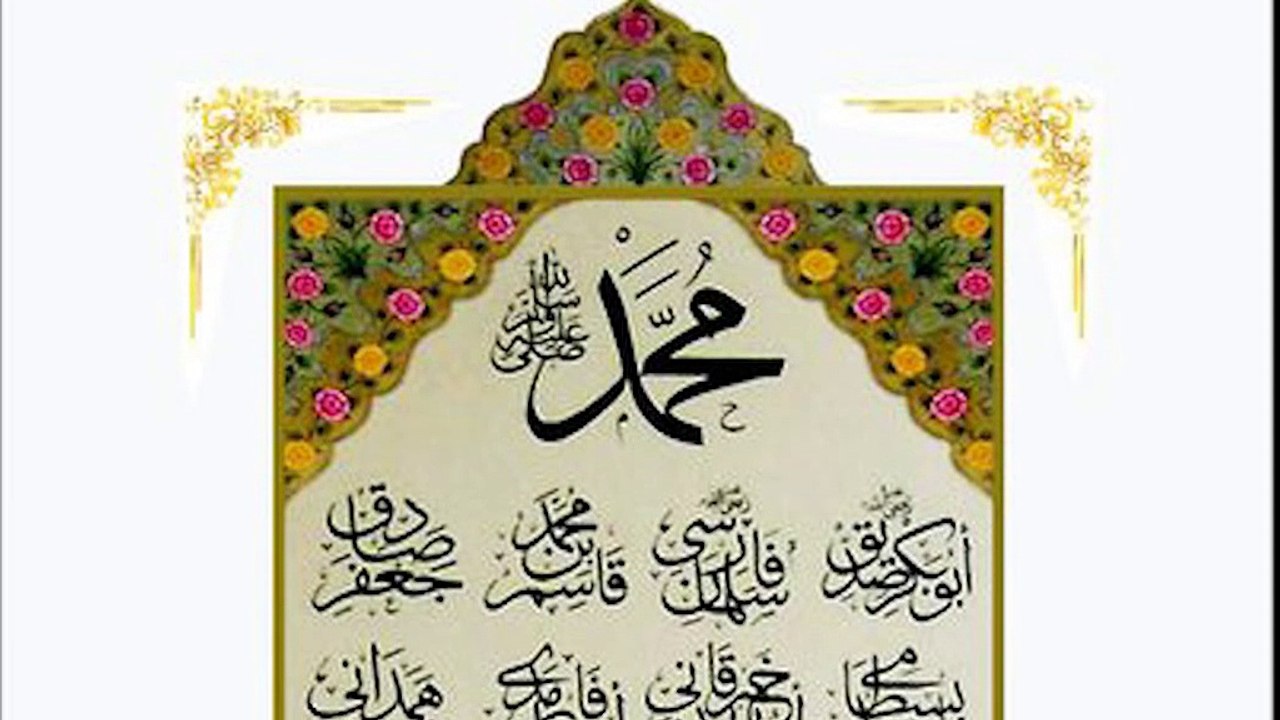 محمد صلى الله عليه وسلم
أبو بكر صديق سلمان فارسي قاسم بن محمد جعفر صادق
بسطامي خرقاني فارمدي همداني